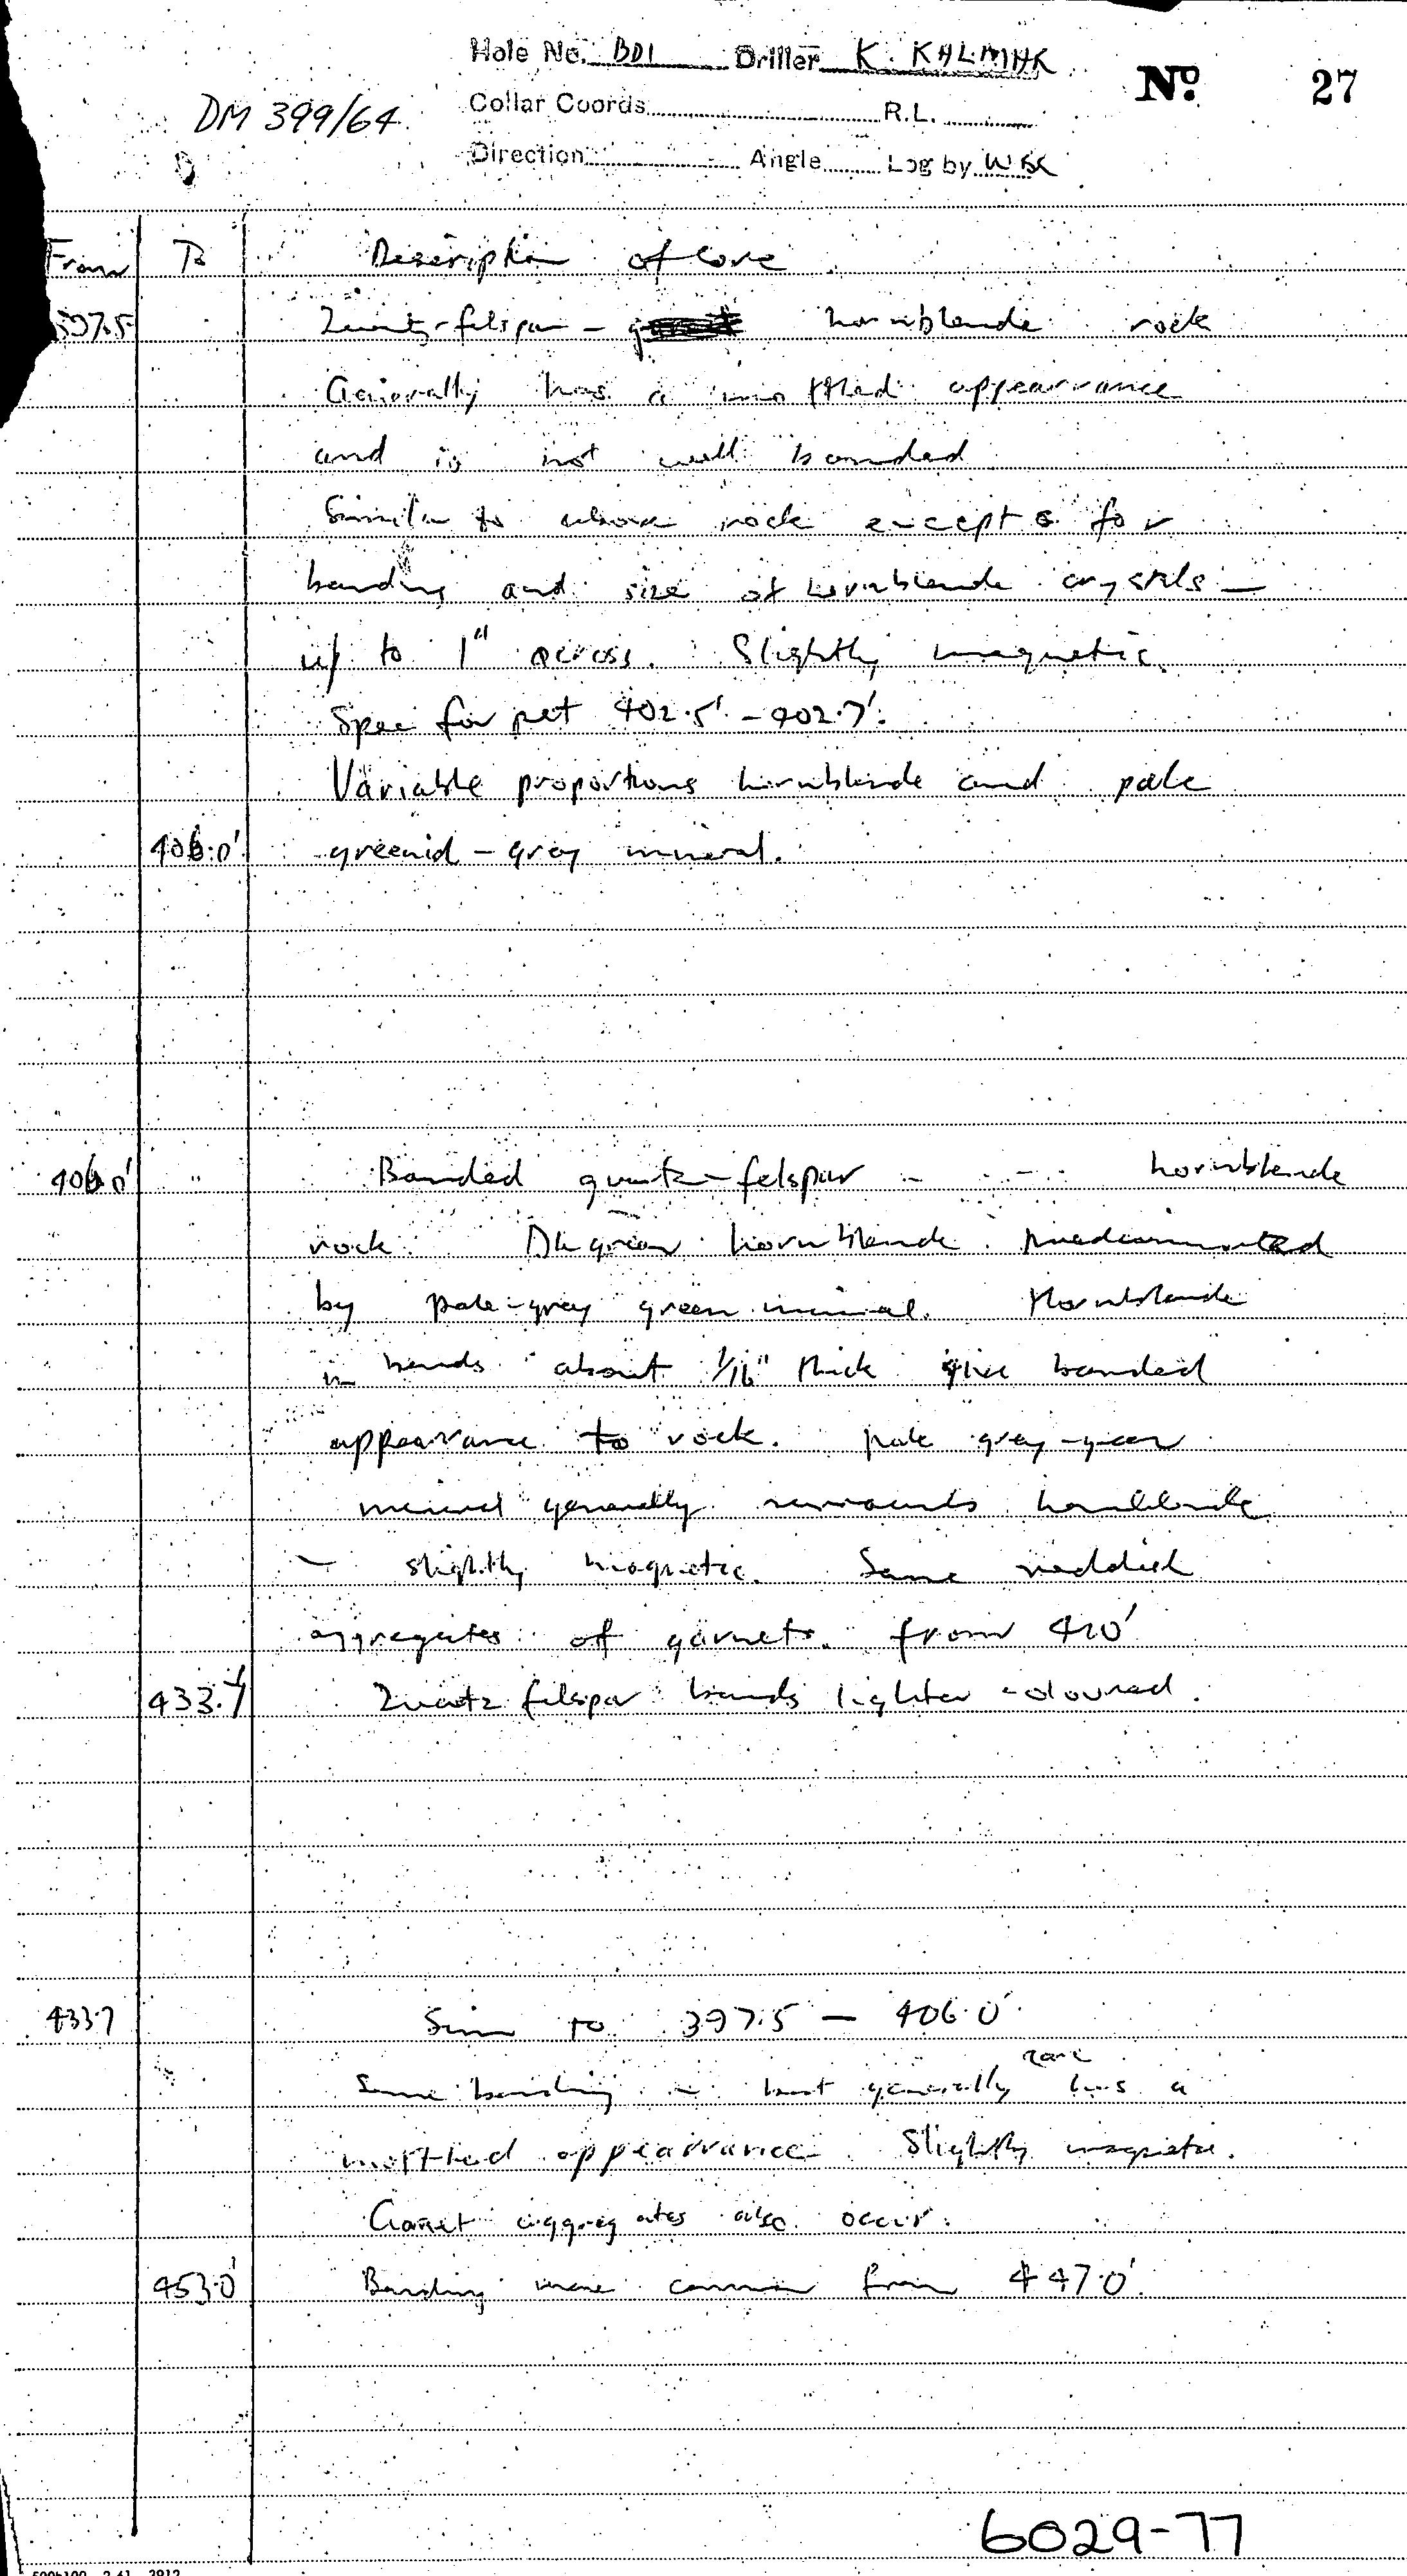 Hole No. BD1 Driller K. KALMAK
No. 27
DM 399/64
Collar Coords. R.L.
Direction Angle Log by
From To Description of Core
397.5 Quartz-felspar - hornblende rock
Generally has a mottled appearance
and is not well banded
Similar to above rock except for
banding and size of hornblende crystals -
up to 1" across. Slightly magnetic.
Spec for pet 402.5' - 402.7'.
Variable proportions hornblende and pale
406.0' greenish - grey mineral.
406.0' Banded quartz-felspar - hornblende
rock. Dk green hornblende predominated
by pale-grey green mineral. Hornblende
in bands about 1/16" thick give banded
appearance to rock. pale grey-green
mineral generally surrounds hornblende
- slightly magnetic. Some reddish
aggregates of garnets. from 410'
433.7 Quartz felspar bands lighter coloured.
433.7 Sim to 397.5 - 406.0'
rare
Some banding - but generally has a
mottled appearance. Slightly magnetic.
Garnet aggregates also occur.
453.0' Banding more common from 447.0'.
6029-77